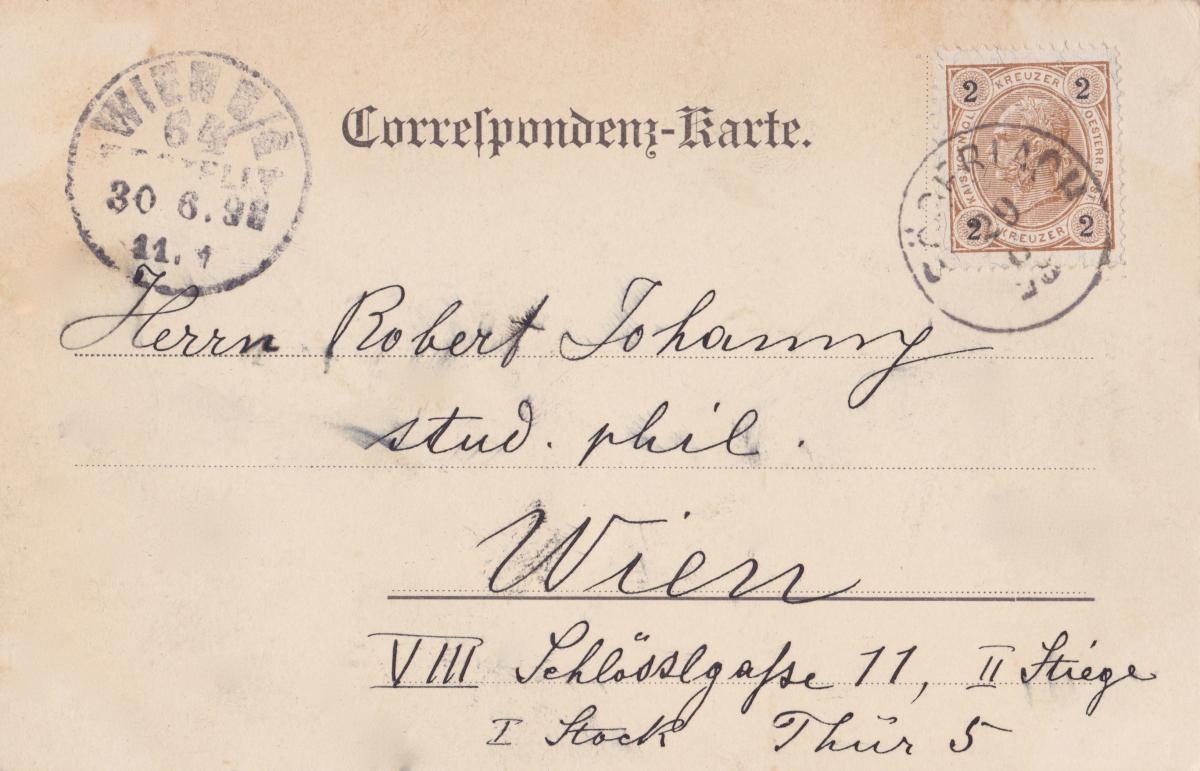 Correspondenz-Karte.
WIEN
64
BESTELLT
30 6. 98
11.
KREUZER
2 2
OESTERR. POST
2 2
KREUZER
29
Herrn Robert Johanny
stud. phil.
Wien
VIII Schlösslgaſse 11, II Stiege
I Stock Thür 5